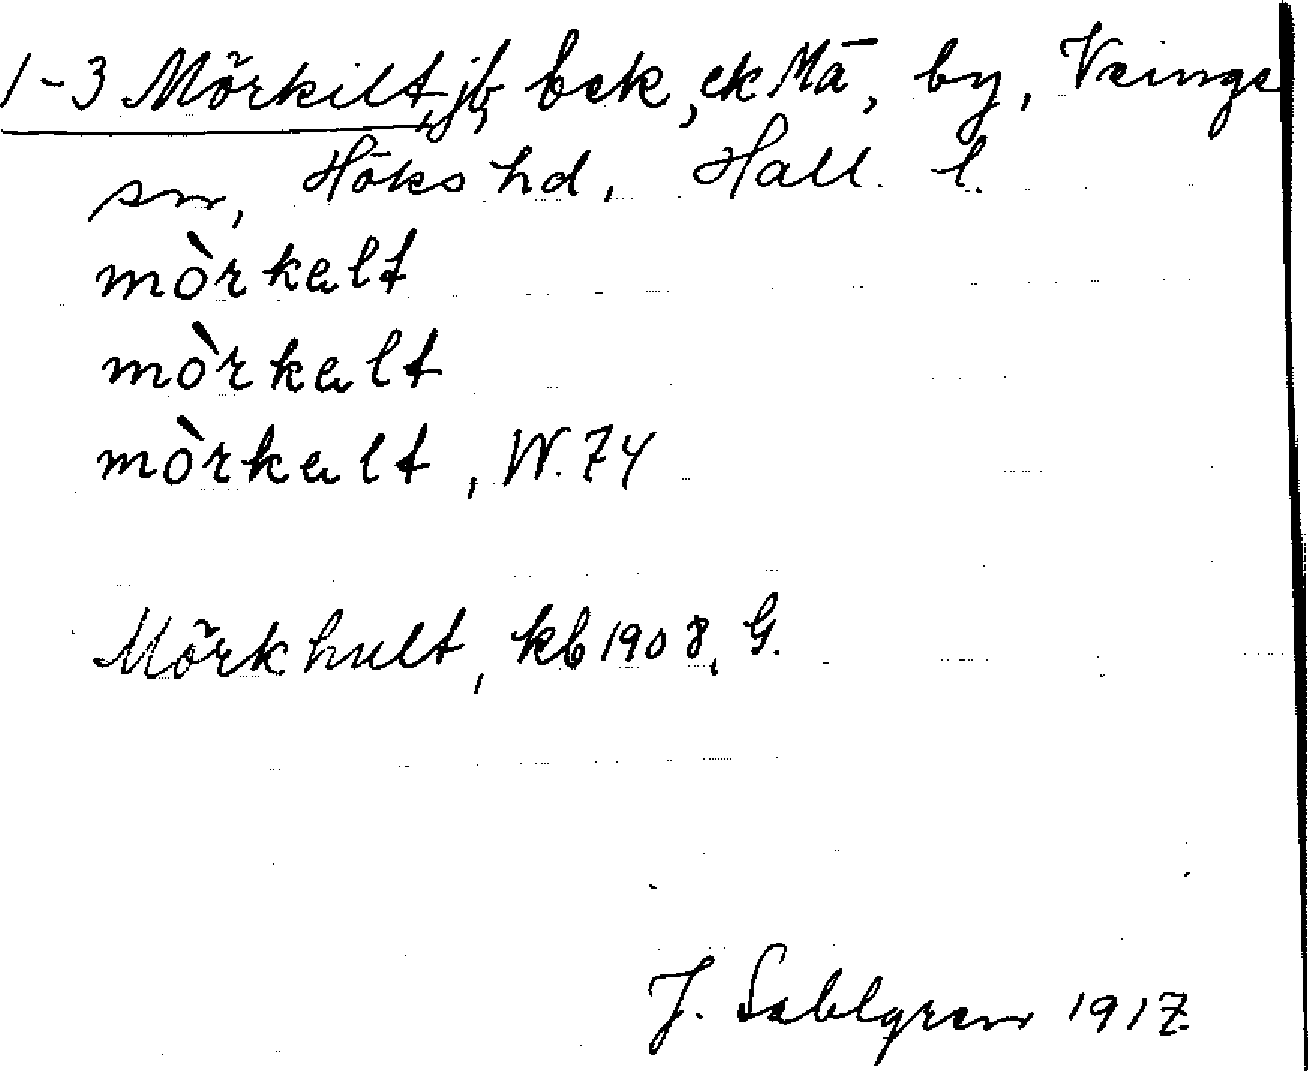 1-3 Mörkilt, jb, bek, ek Mā, by, Veinge
sn, Höks hd, Hall. l.
mòrkalt
mòrkalt
mòrkalt, W. 74
Mörkhult, kb 1908, G.
J. Sahlgren 1917.